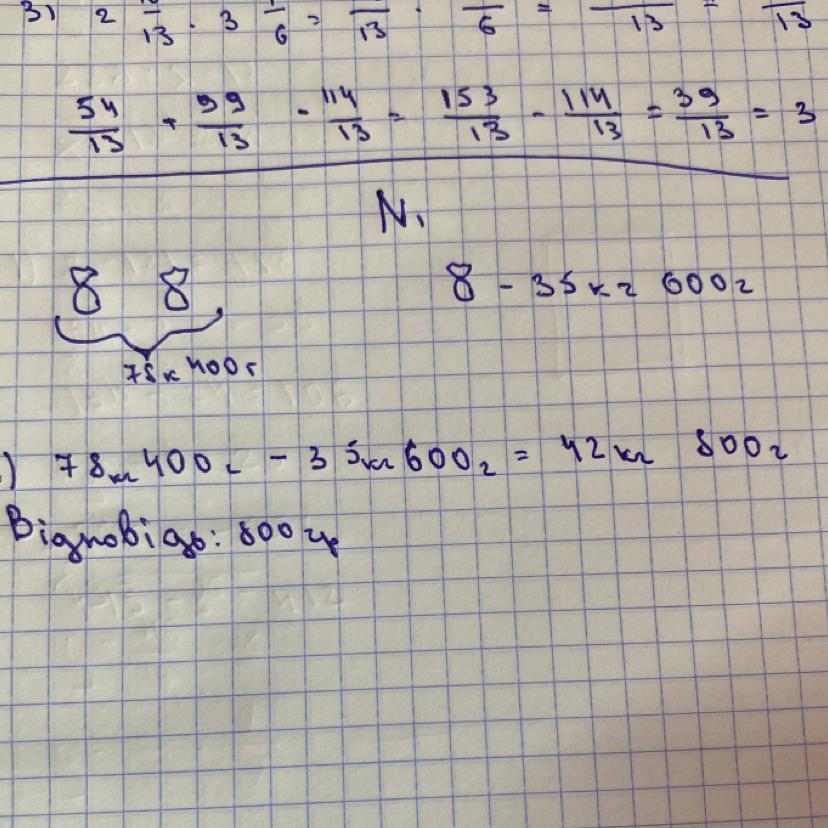 3) 2 /13 · 3 /6 = /13 · /6 = /13 = /13
54/13 + 99/13 - 114/13 = 153/13 - 114/13 = 39/13 = 3
N1
8 8 8 - 35 кг 600 г
78к 400 г
) 78 кг 400 г - 35 кг 600 г = 42 кг 800 г
Відповідь: 800 гр